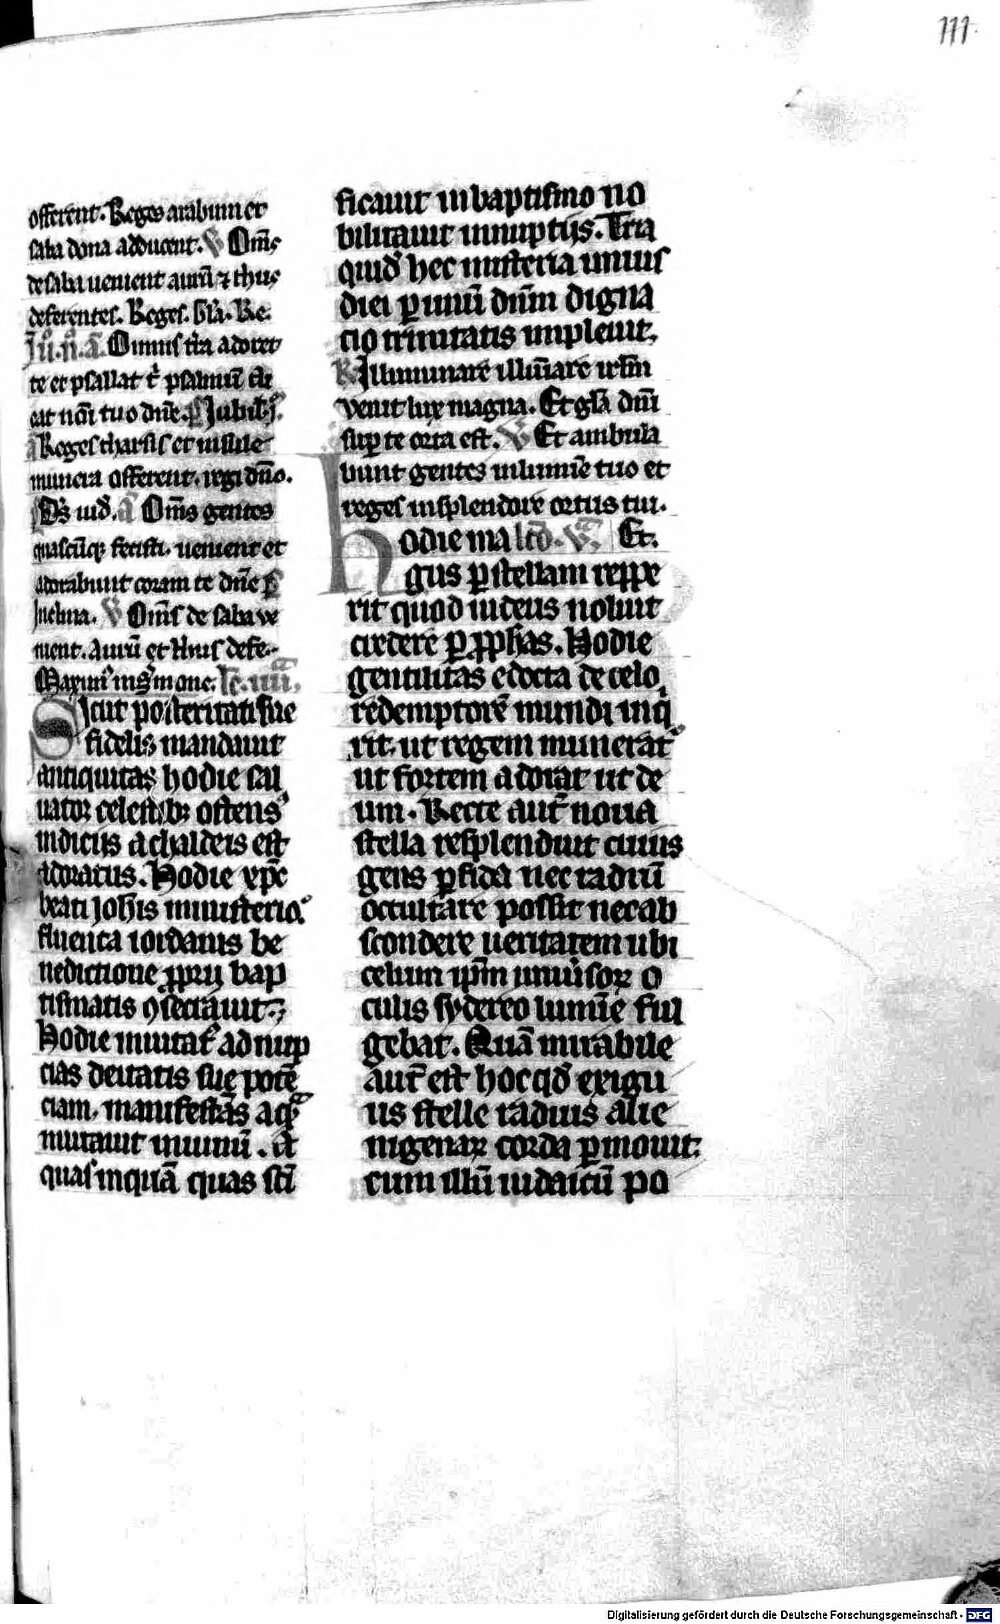 111
offerent. Reges arabum et
saba dona adducent. V Om̄s
de saba uenient aurū ⁊ thus
deferentes. Reges. Gl̄a. Re.
Jn .ii. n̄. a. Omnis t̄ra adoret
te et psallat t̄ psalmū di
cat nōi tuo dn̄e. p̄ Jubil.
a Reges tharsis et insule
munera offerent. regi dn̄o.
Ds̄ iud̄. a Om̄s gentes
quascūq; fecisti. uenient et
adorabunt coram te dn̄e p̄
Inclina. V Om̄s de saba ue
nient. Aurū et thus defe.
Maximi in s̄mone. Lc̄. iiii.
Sicut posteritati sue
fidelis mandauit
antiquitas hodie sal
uator celestibȝ ostens᷒
indiciis a chaldeis est
adoratus. Hodie xp̄c
beati joh̄is ministerio
fluenta iordanis be
nedictione p̄prii bap
tismatis ꝯsecrauit.
Hodie inuitat᷒ ad nup
cias deitatis sue potē
ciam. manifestās aq̄ᵃ
mutauit in uinū. Et
quas inquā quas sc̄i
ficauit in baptismo no
bilitauit in nuptiis. Tria
quid̄ hec misteria unius
diei p unū dn̄m digna
tio trinitatis impleuit.
R Illuminare illūiare irl̄m
uenit lux magna. Et gl̄a dn̄i
sup te orta est. V Et ambula
bunt gentes in lumīe tuo et
reges in splendore ortus tui.
Hodie ma lc̄o. V. Et.
gus p stellam reppe
rit quod iudeus noluit
credere p p̄phas. Hodie
gentilitas edocta de celo
redemptorē mundi inq̇
rit. ut regem munerat᷒
ut fortem adorat ut de
um. Recte aut̄ noua
stella resplenduit cuius
gens pfida nec radiū
occultare possit nec ab
scondere ueritatem ubi
celum ip̄m uniūsoꝝ o
culis sydereo lumīe ful
gebat. Quā mirabile
aut̄ est hoc qd̄ exigu
us stelle radius alie
nigenaꝝ corda pmouit.
cum illū iudaicū po
Digitalisierung gefördert durch die Deutsche Forschungsgemeinschaft - DFG